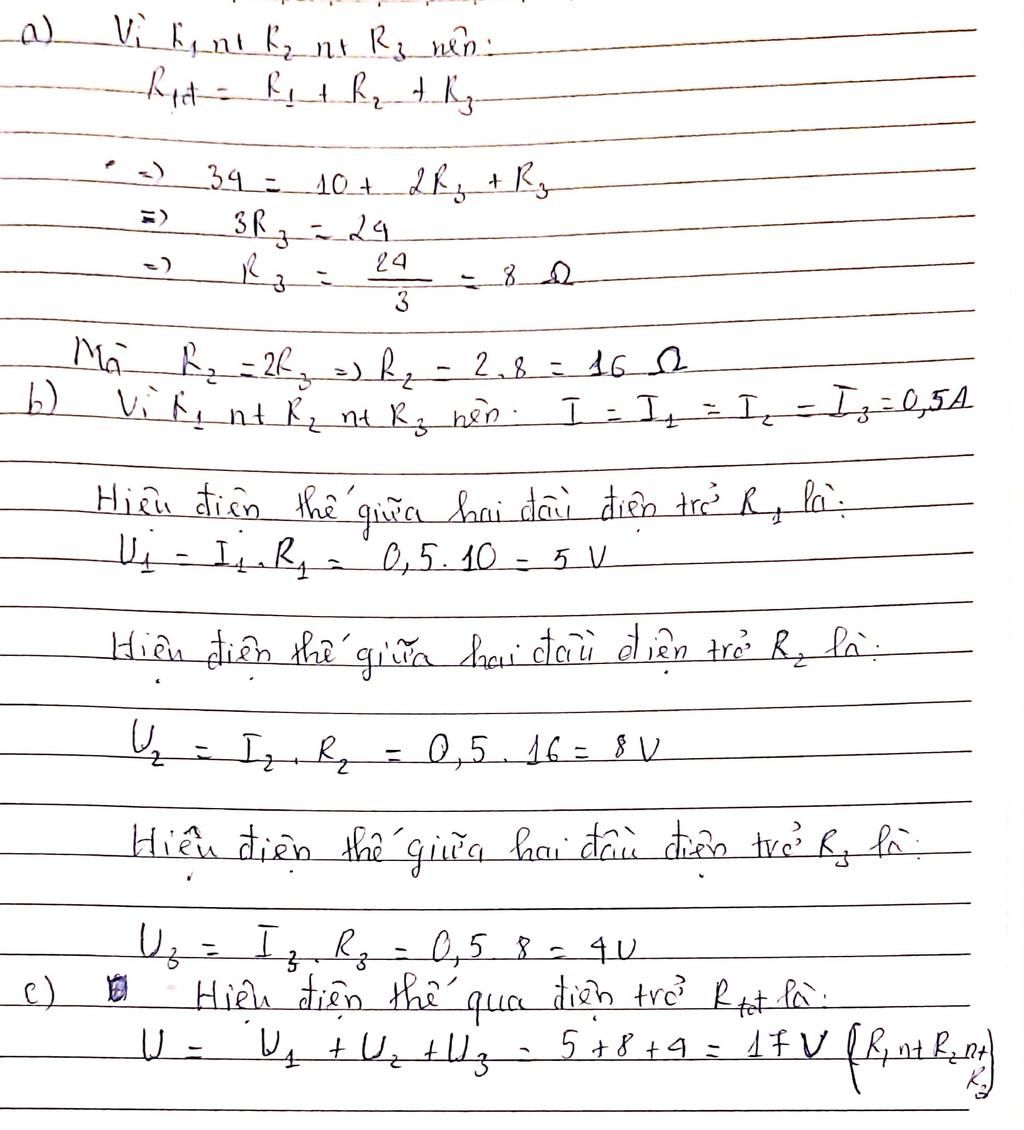 a) Vì R₁ nt R₂ nt R₃ nên:
Rtđ = R₁ + R₂ + R₃
=> 34 = 10 + 2R₃ + R₃
=> 3R₃ = 24
=> R₃ = 24/3 = 8 Ω
Mà R₂ = 2R₃ => R₂ = 2.8 = 16 Ω
b) Vì R₁ nt R₂ nt R₃ nên: I = I₁ = I₂ = I₃ = 0,5A
Hiệu điện thế giữa hai đầu điện trở R₁ là:
U₁ = I₁.R₁ = 0,5.10 = 5 V
Hiệu điện thế giữa hai đầu điện trở R₂ là:
U₂ = I₂.R₂ = 0,5.16 = 8V
Hiệu điện thế giữa hai đầu điện trở R₃ là:
U₃ = I₃.R₃ = 0,5.8 = 4V
c) Hiệu điện thế qua điện trở Rtđ là:
U = U₁ + U₂ + U₃ = 5+8+4 = 17 V (R₁ nt R₂ nt R₃)